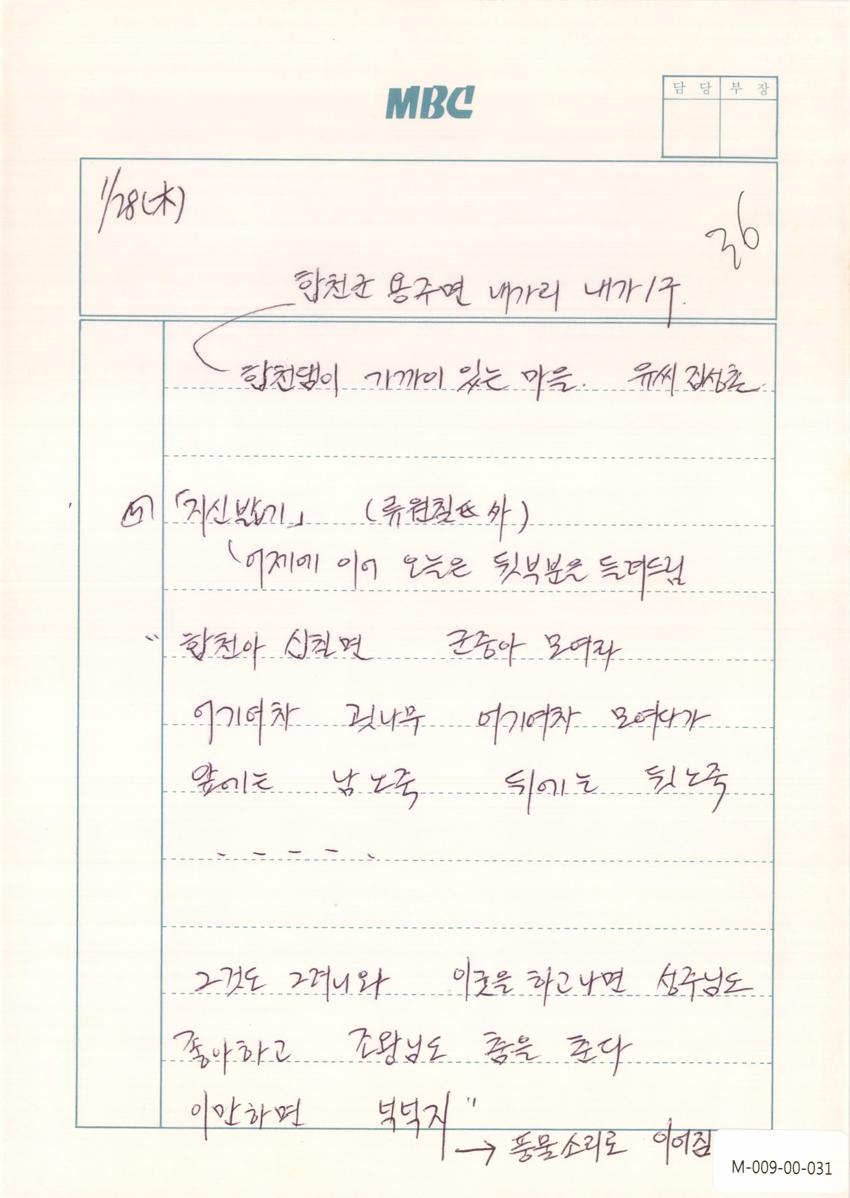 MBC
담당 부장
1/28(木)
36
합천군 용주면 내가리 내가1구.
합천댐이 가까이 있는 마을. 유씨 집성촌.
「지신밟기」 (류원칠氏 外)
어제에 이어 오늘은 뒷부분을 들려드림
" 합천아 십칠면 군중아 모여라
어기여차 굇나무 어기여차 모여다가
앞에는 남노죽 뒤에는 뒷노죽
- - - - -
그것도 그려니와 이굿을 하고나면 성주님도
좋아하고 조왕님도 춤을 춘다
이만하면 넉넉지 "
→ 풍물소리로 이어짐
M-009-00-031